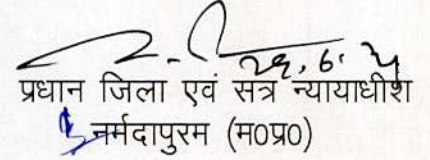 प्रधान जिला एवं सत्र न्यायाधीश
नर्मदापुरम (म0प्र0)